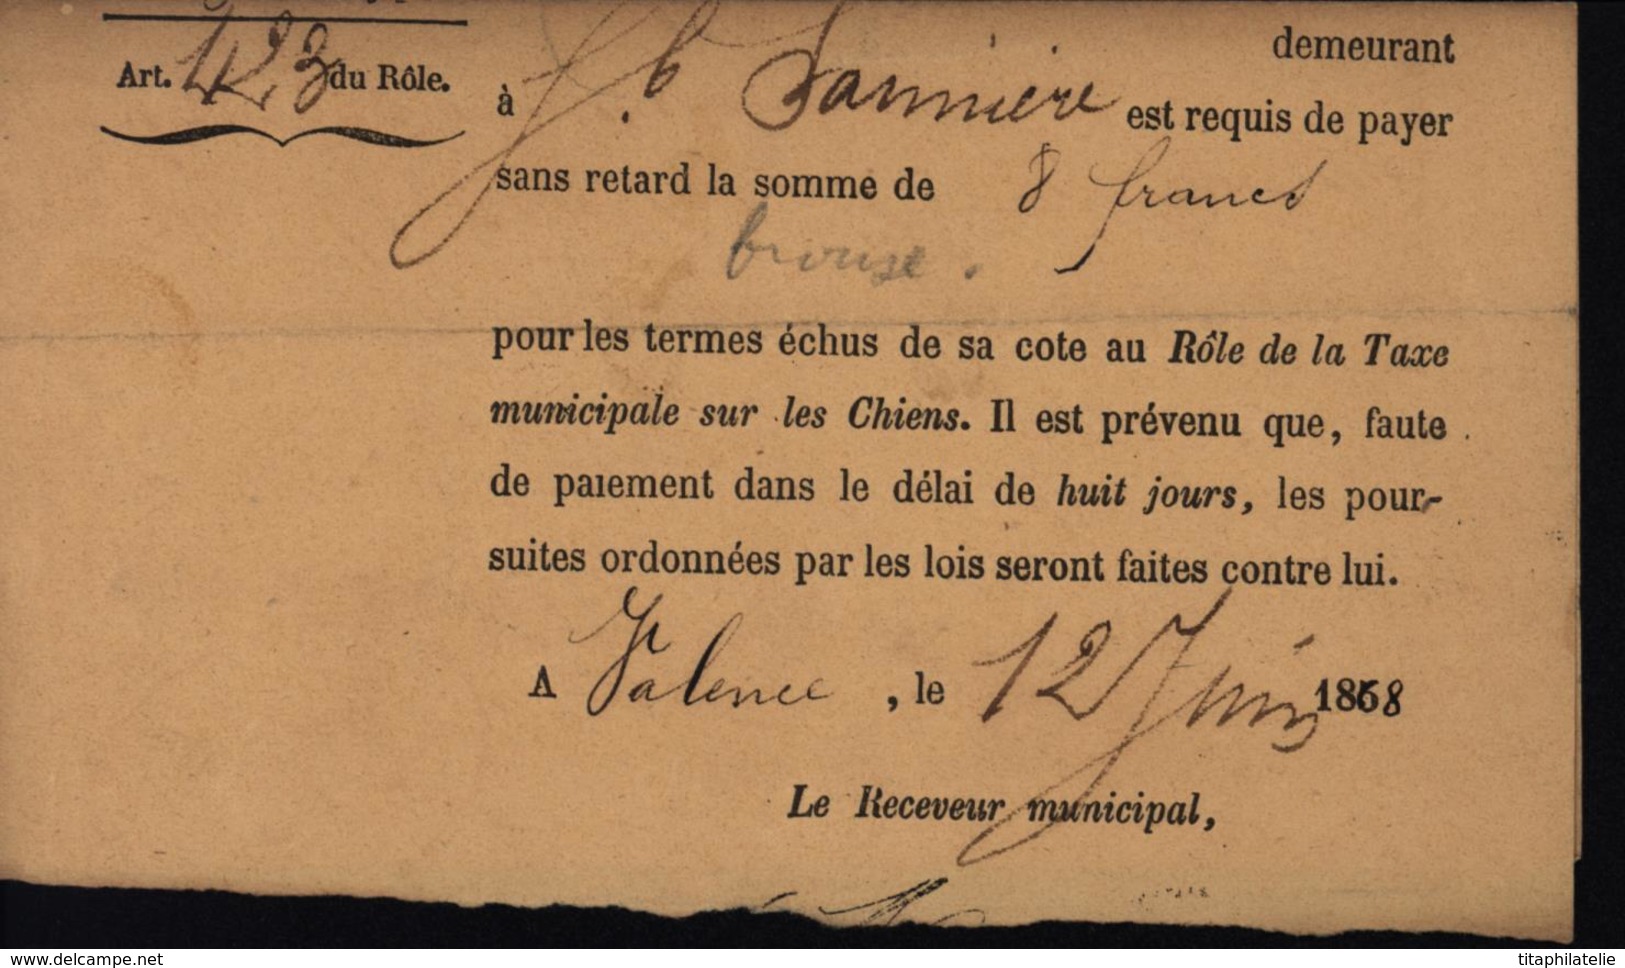 demeurant
Art. 423 du Rôle.
à f.b Saunière est requis de payer
sans retard la somme de 8 francs
pour les termes échus de sa cote au Rôle de la Taxe
municipale sur les Chiens. Il est prévenu que, faute
de paiement dans le délai de huit jours, les pour-
suites ordonnées par les lois seront faites contre lui.
A Valence, le 12 Juin 1868
Le Receveur municipal,
www.delcampe.net
titaphilatelie